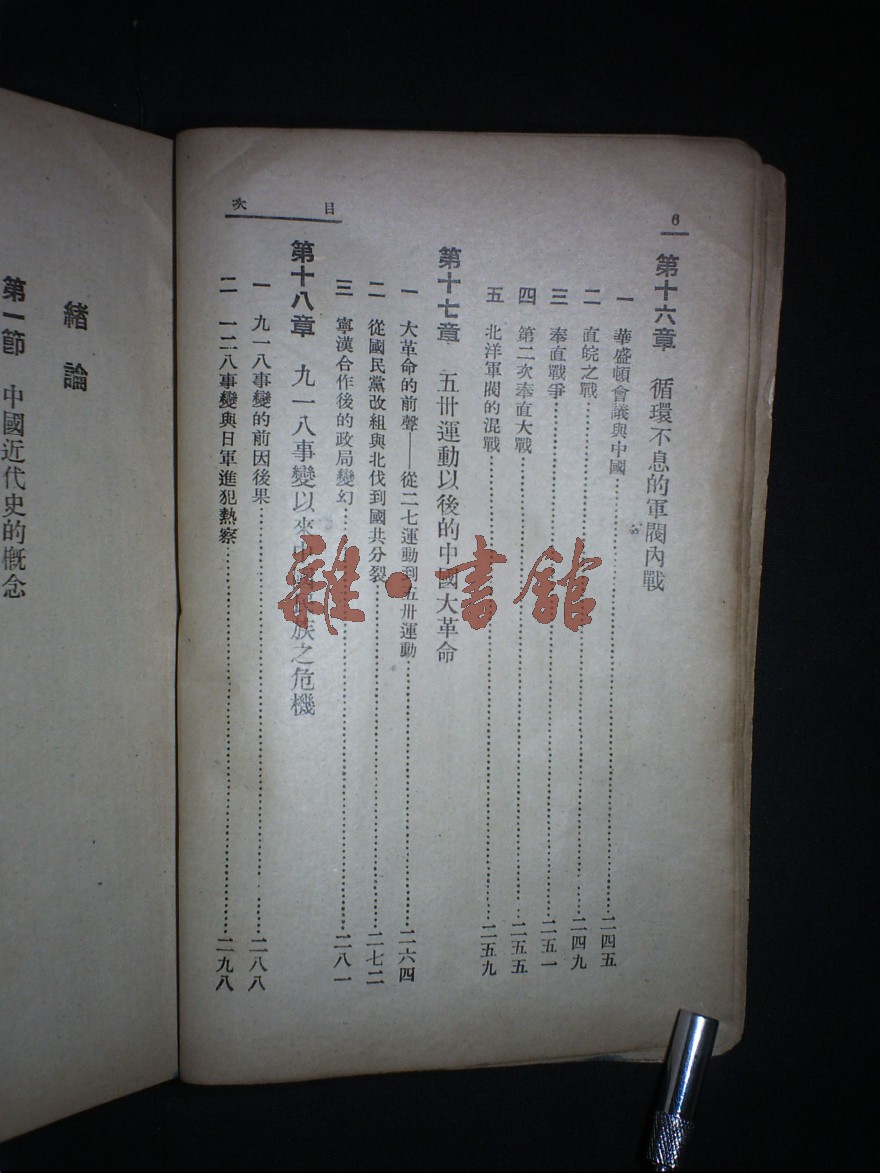 6
目次
第十六章 循環不息的軍閥內戰
一 華盛頓會議與中國……二四五
二 直皖之戰……二四九
三 奉直戰爭……二五一
四 第二次奉直大戰……二五五
五 北洋軍閥的混戰……二五九
第十七章 五卅運動以後的中國大革命
一 大革命的前聲——從二七運動到五卅運動……二六四
二 從國民黨改組與北伐到國共分裂……二七二
三 寧漢合作後的政局變幻……二八一
第十八章 九一八事變以來中 族之危機
一 九一八事變的前因後果……二八八
二 一二八事變與日軍進犯熱察……二九八
緒論
第一節 中國近代史的概念
雜·書館